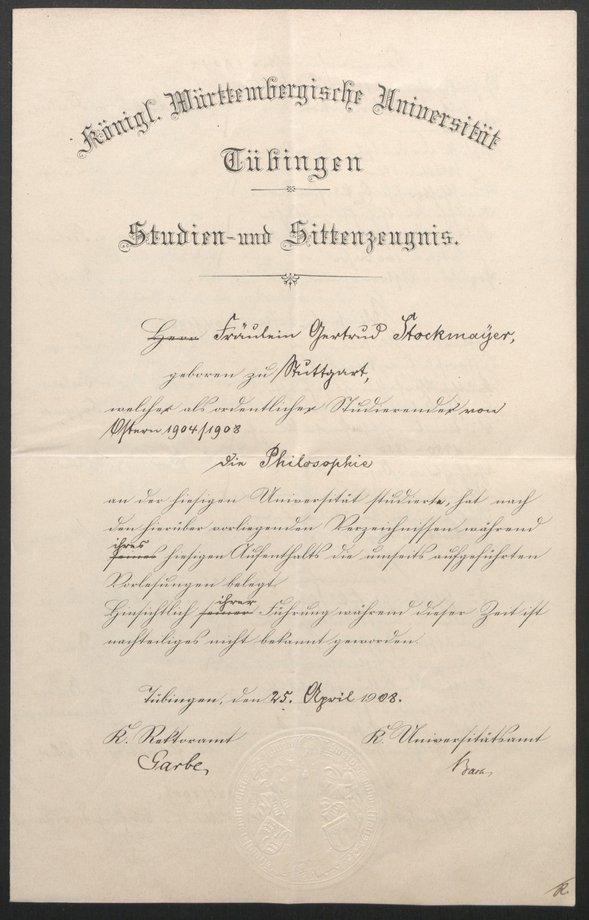 Königl. Württembergische Universität
Tübingen
Studien- und Sittenzeugnis.
Herr Fräulein Gertrud Stockmayer,
geboren zu Stuttgart,
welcher als ordentlicher Studierender von
Ostern 1904/1908
die Philosophie
an der hiesigen Universität studierte, hat nach
den hierüber vorliegenden Verzeichnissen während
ihres
seines hiesigen Aufenthalts die umseits aufgeführten
Vorlesungen belegt.
ihrer
Hinsichtlich seiner Führung während dieser Zeit ist
nachteiliges nicht bekannt geworden.
Tübingen, den 25. April 1908.
K. Rektoramt K. Universitätsamt
Garbe,